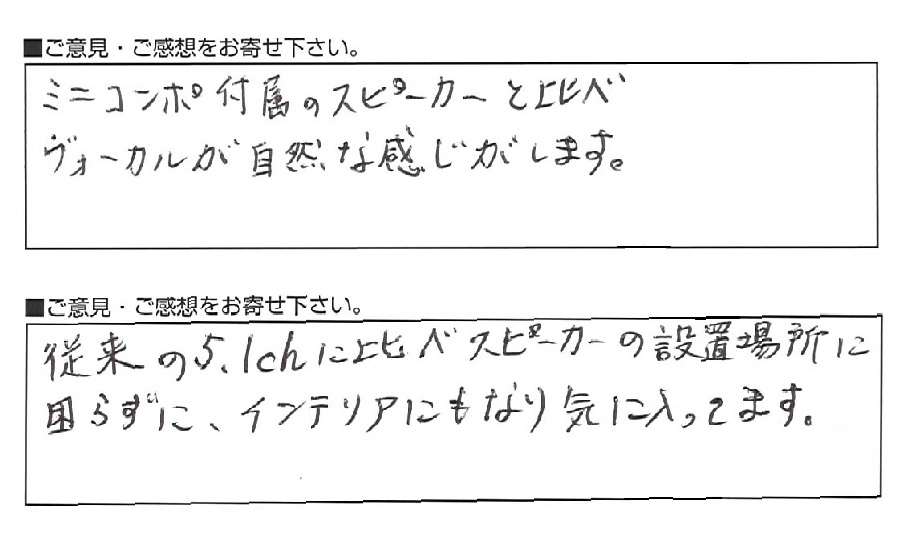 ■ご意見・ご感想をお寄せ下さい。
ミニコンポ付属のスピーカーと比べ
ヴォーカルが自然な感じがします。
■ご意見・ご感想をお寄せ下さい。
従来の5.1chに比べスピーカーの設置場所に
困らずに、インテリアにもなり気に入ってます。